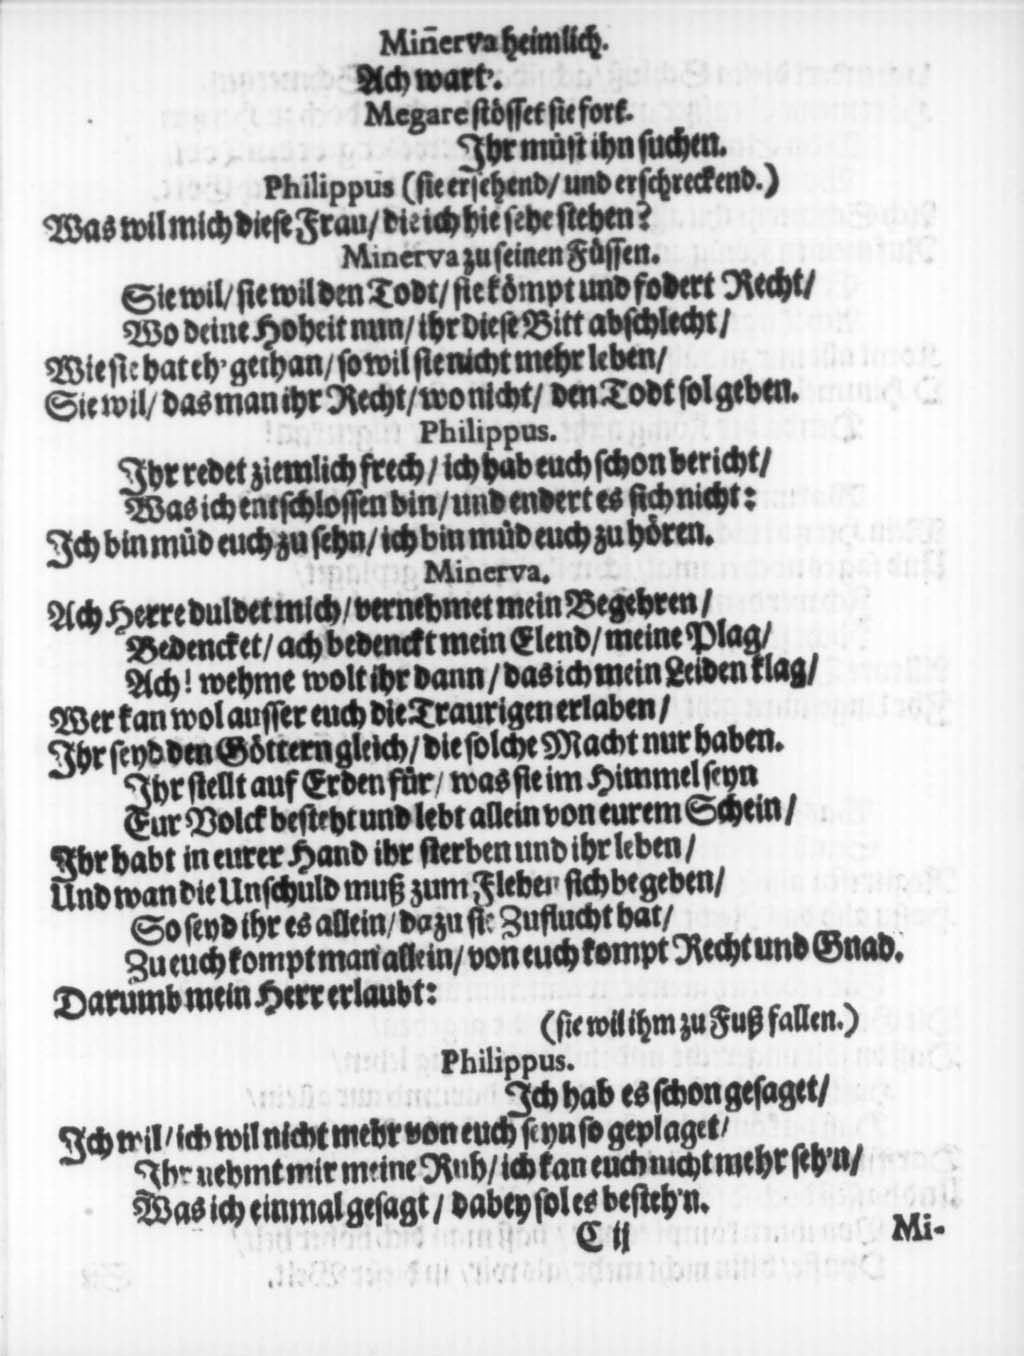 Miñerva heimlich.
Ach wart’.
Megare stösset sie fort.
Ihr müst ihn suchen.
Philippus (sie ersehend/ und erschreckend.)
Was wil mich diese Frau/ die ich hie sehe stehen?
Minerva zu seinen Füssen.
Sie wil/ sie wil den Todt/ sie kömpt und fodert Recht/
Wo deine Hoheit nun/ ihr diese Bitt abschlecht/
Wie sie hat eh’ gethan/ so wil sie nicht mehr leben/
Sie wil/ das man ihr Recht/ wo nicht/ den Todt sol geben.
Philippus.
Ihr redet ziemlich frech/ ich hab euch schon bericht/
Was ich entschlossen bin/ und endert es sich nicht:
Ich bin müd euch zu sehn/ ich bin müd euch zu hören.
Minerva.
Ach Herre duldet mich/ vernehmet mein Begehren/
Bedencket/ ach bedenckt mein Elend/ meine Plag/
Ach! wehme wolt ihr dann/ das ich mein Leiden klag/
Wer kan wol ausser euch die Traurigen erlaben/
Ihr seyd den Göttern gleich/ die solche Macht nur haben.
Ihr stellt auf Erden für/ was sie im Himmel seyn
Eur Volck besteht und lebt allein von eurem Schein/
Ihr habt in eurer Hand ihr sterben und ihr leben/
Und wan die Unschuld muß zum Flehen sich begeben/
So seyd ihr es allein/ da zu sie Zuflucht hat/
Zu euch kompt man allein/ von euch kompt Recht und Gnad.
Darumb mein Herr erlaubt:
(sie wil ihm zu Fuß fallen.)
Philippus.
Ich hab es schon gesaget/
Ich wil/ ich wil nicht mehr von euch seyn so geplaget/
Ihr nehmt mir meine Ruh/ ich kan euch nicht mehr seh’n/
Was ich einmal gesagt/ dabey sol es besteh’n.
C ij
Mi-